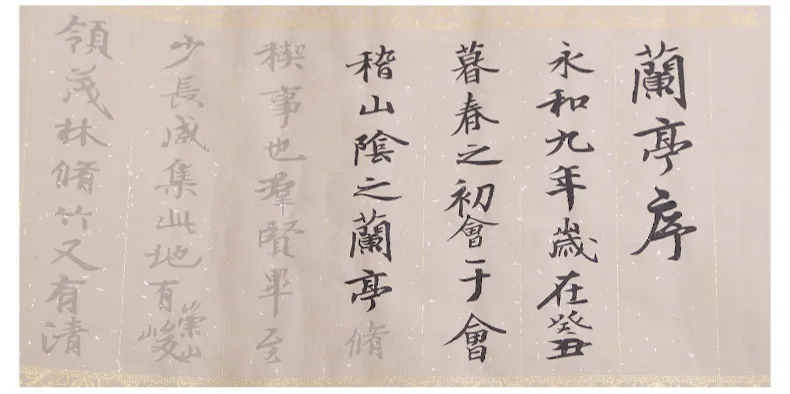 蘭亭序
永和九年歲在癸丑
暮春之初會于會
稽山陰之蘭亭脩
稧事也羣賢畢至
少長咸集此地有崇山峻
領茂林脩竹又有清